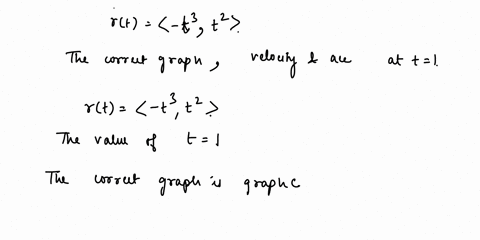 r(t) = <-t³, t²>.
The correct graph, velocity & acc at t=1.
r(t) = <-t³, t²>
The value of t=1
The correct graph is graph c